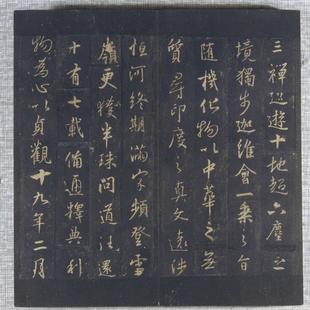 三禪巡遊十地超六塵之
境獨步迦維會一乘之旨
隨機化物以中華之無
質尋印度之真文遠涉
恒河終期滿字頻登雪
嶺更獲半珠問道法還
十有七載備通釋典利
物為心以貞觀十九年二月